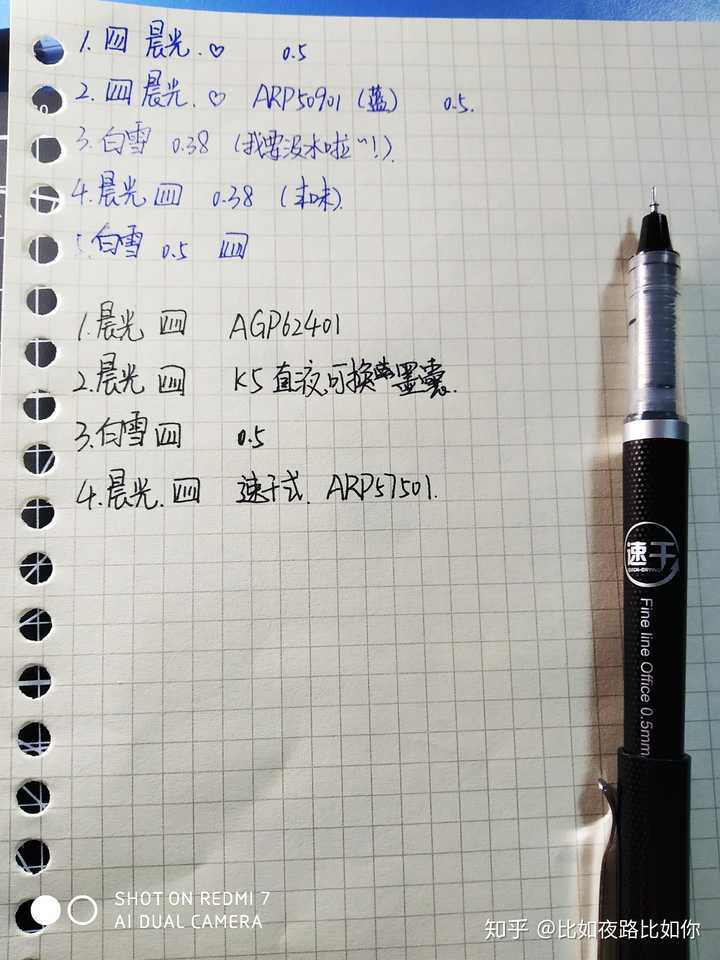 1. 皿 晨光. ♡ 0.5
2. 皿 晨光. ♡ ARP50901 (蓝) 0.5.
3. 白雪 0.38 (我要没水啦~!).
4. 晨光 皿 0.38 (本味).
5. 白雪 0.5 皿
1. 晨光 皿 AGP62401
2. 晨光 皿 K5 直液可换墨囊.
3. 白雪 皿 0.5
4. 晨光. 皿 速干式. ARP57501.
速干
QUICK-DRYING
Fine line Office 0.5mm
SHOT ON REDMI 7
AI DUAL CAMERA
知乎 @比如夜路比如你